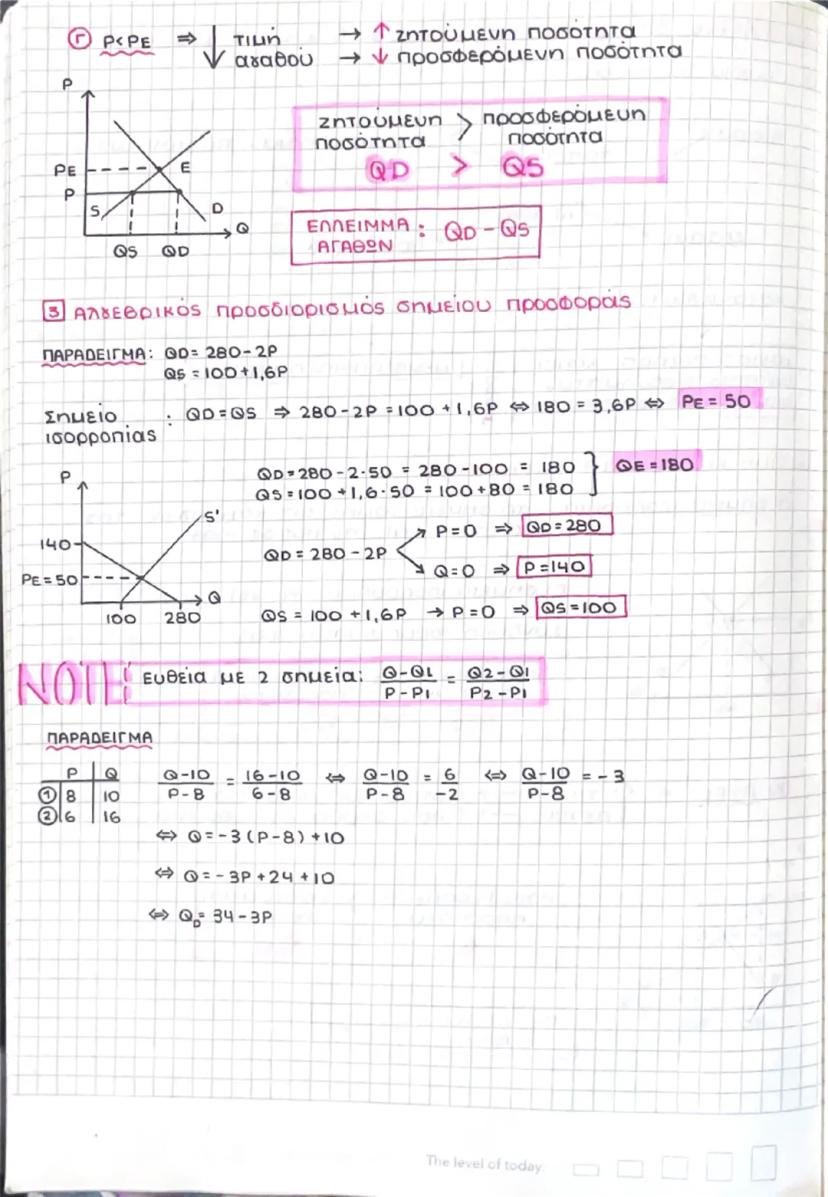 Γ P<PE ⇒ ↓ τιμή → ↑ ζητούμενη ποσότητα
αγαθού → ↓ προσφερόμενη ποσότητα
P
PE
P
S
E
D
Q
QS QD
ζητούμενη ποσότητα > προσφερόμενη ποσότητα
QD > QS
ΕΛΛΕΙΜΜΑ ΑΓΑΘΩΝ : QD - QS
3 Αλγεβρικός προσδιορισμός σημείου προσφοράς
ΠΑΡΑΔΕΙΓΜΑ: QD = 280-2P
QS = 100+1,6P
Σημείο ισορροπίας : QD=QS ⇒ 280-2P = 100 + 1,6P ⇔ 180 = 3,6P ⇔ PE = 50
QD=280-2·50 = 280-100 = 180 } QE = 180
QS=100+1,6·50 = 100+80 = 180
P
S'
140
PE=50
Q
100 280
QD = 280-2P
P=0 ⇒ QD=280
Q=0 ⇒ P=140
QS = 100 + 1,6P → P=0 ⇒ QS=100
NOTE: Ευθεία με 2 σημεία: Q-Q1/P-P1 = Q2-Q1/P2-P1
ΠΑΡΑΔΕΙΓΜΑ
P Q
① 8 10
② 6 16
Q-10/P-8 = 16-10/6-8 ⇔ Q-10/P-8 = 6/-2 ⇔ Q-10/P-8 = -3
⇔ Q=-3(P-8)+10
⇔ Q=-3P+24+10
⇔ QD= 34-3P
The level of today: